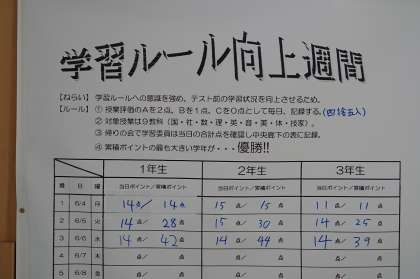 学習ルール向上週間
【ねらい】学習ルールへの意識を強め、テスト前の学習状況を向上させるため。
【ルール】① 授業評価のAを2点、Bを1点、Cを0点として毎日、記録する。(四捨五入)
② 対象授業は9教科(国・社・数・理・英・音・美・体・技家)。
③ 帰りの会で学習委員は当日の合計点を確認し中央廊下の表に記録。
④ 累積ポイントの最も大きい学年が・・・優勝!!
1年生 2年生 3年生
当日ポイント/累積ポイント 当日ポイント/累積ポイント 当日ポイント/累積ポイント
1 6/4 月 14点/ 14点 15点/ 15点 11点/ 11点
2 6/5 火 14点/ 28点 15点/ 30点 14点/ 25点
3 6/6 水 14点/ 42点 14点/ 44点 14点/ 39点
4 6/7 木 点/ 点 点/ 点 点/ 点
5 6/8 金 点/ 点 点/ 点 点/ 点